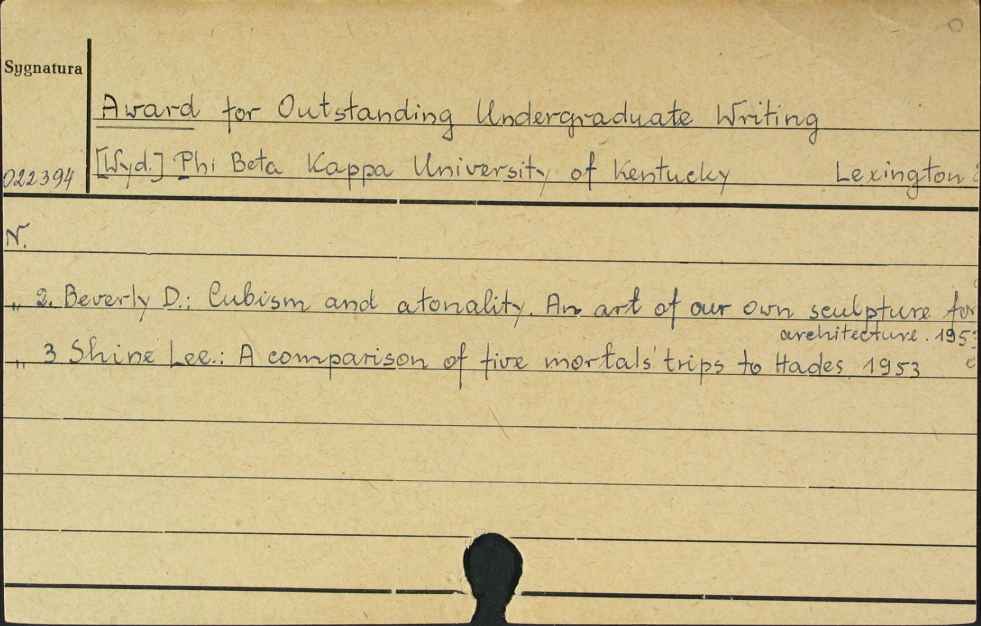 Sygnatura
Award for Outstanding Undergraduate Writing
022394 [Wyd.] Phi Beta Kappa University of Kentucky Lexington
N.
„ 2. Beverly D.: Cubism and atonality. An art of our own sculpture for
architecture. 1953
„ 3 Shine Lee.: A comparison of five mortals' trips to Hades 1953